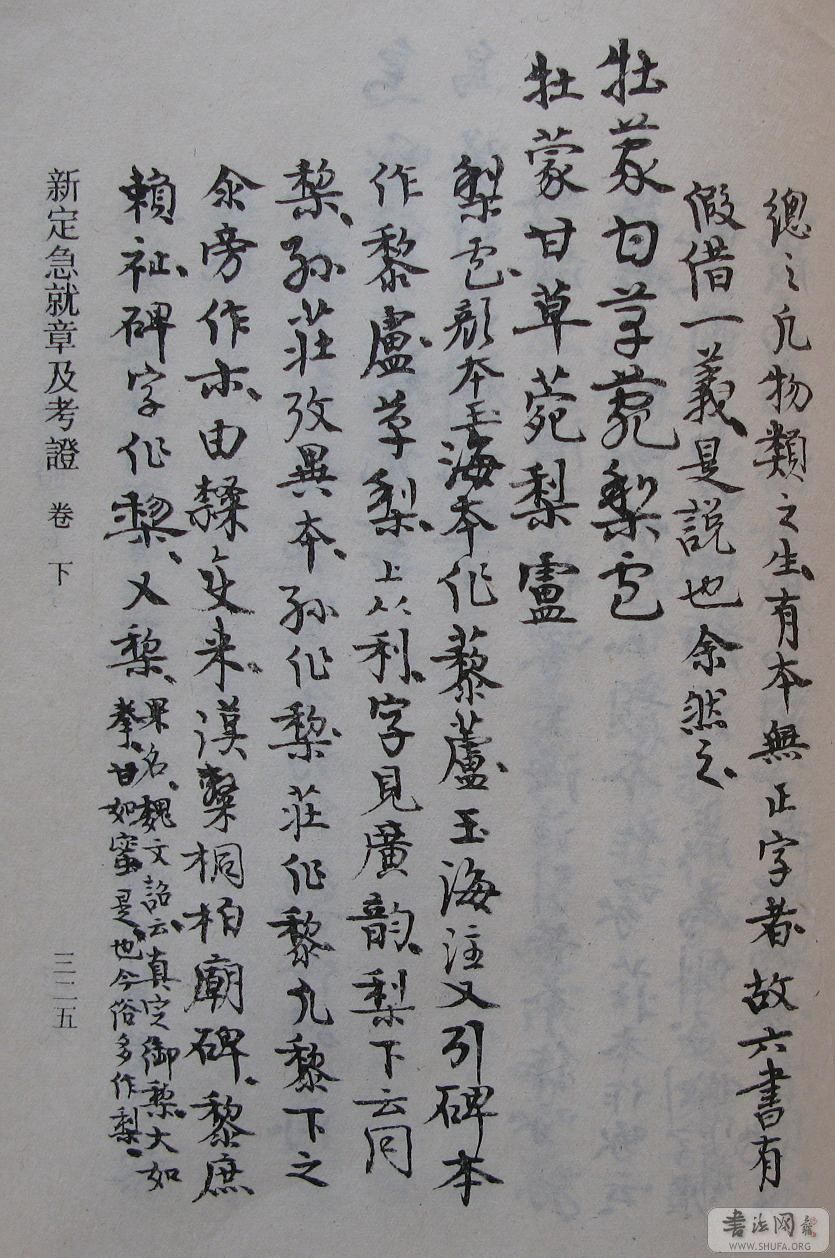 總之凡物類之生有本無正字者故六書有
假借一義是說也余然之
牡蒙甘草菀梨
牡蒙甘草菀梨盧
梨 顏本玉海本作藜蘆玉海注又引碑本
作黎盧草梨上从利字見廣韵梨下云同
棃孫莊攷異本孫作棃莊作黎凡黎下之
旁作 由 變來漢 桐柏廟碑黎庶
賴祉碑字作 又棃果名魏文詔云真定御棃大如
拳甘如蜜是也今俗多作梨
新定急就章及考證 卷下 三二五
書法网
WWW.SHUFA.ORG